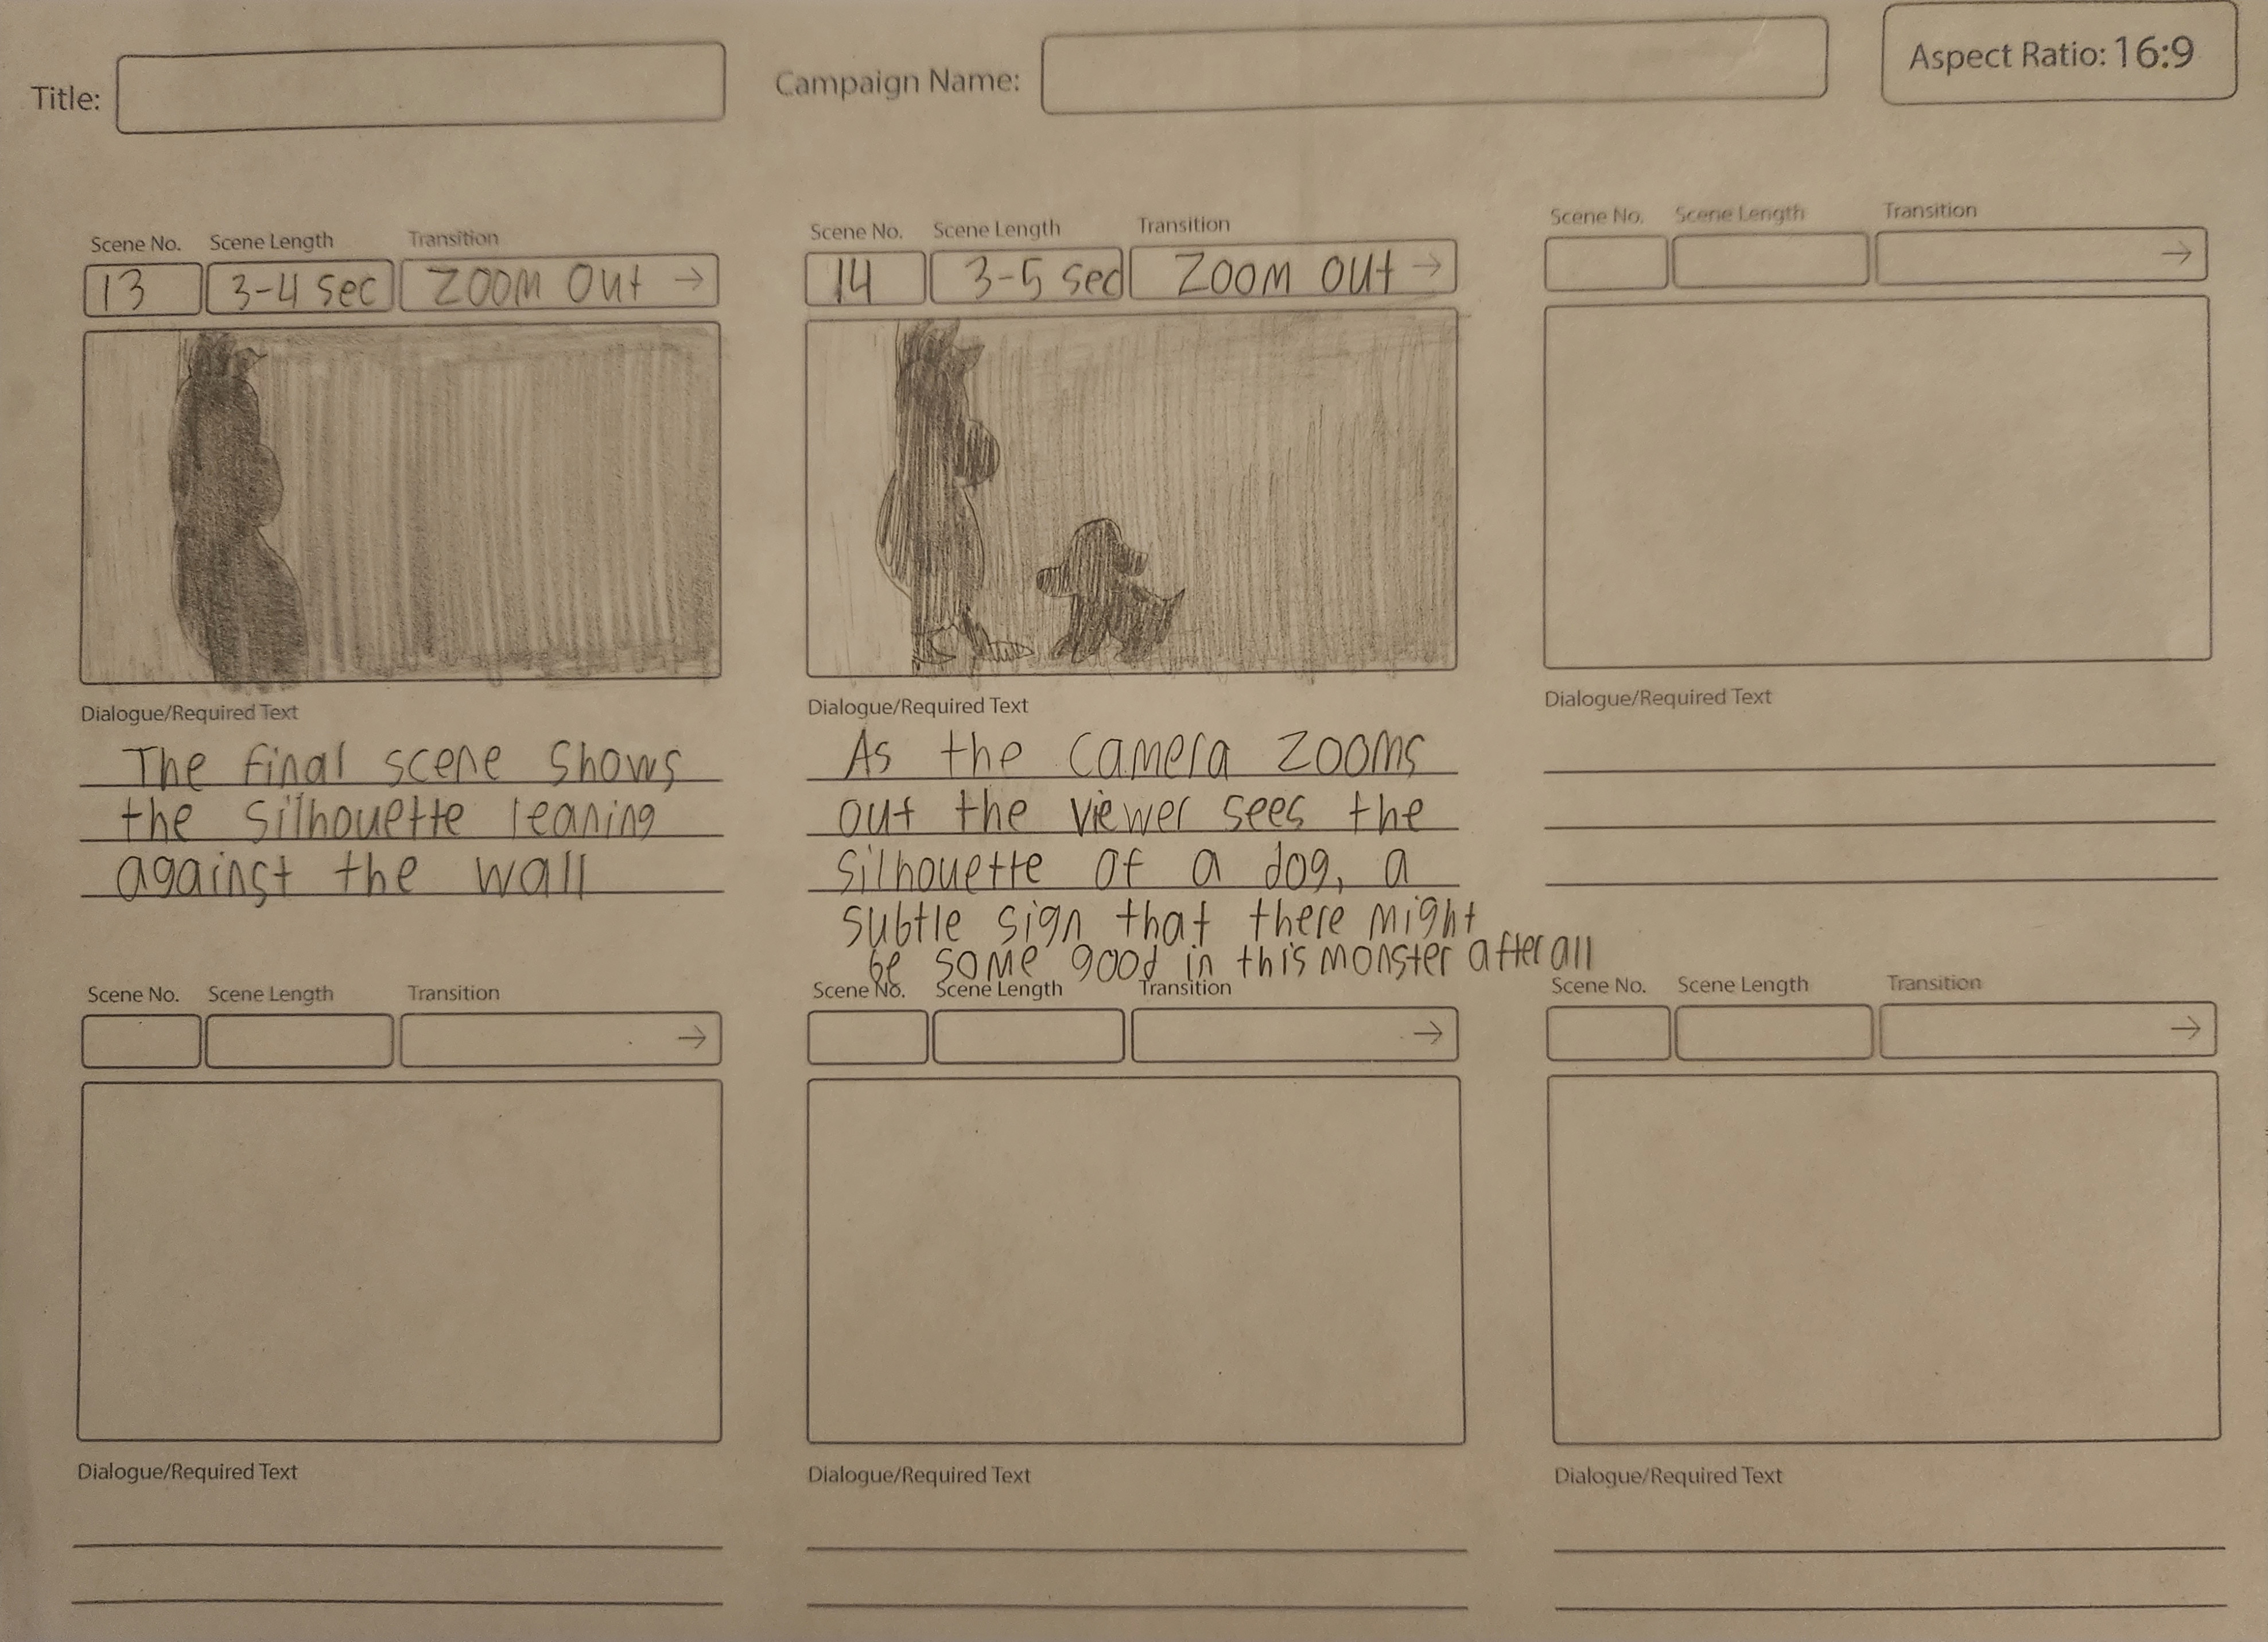 Title:
Campaign Name:
Aspect Ratio: 16:9
Scene No. Scene Length Transition
13 3-4 sec ZOOM OUT →
Dialogue/Required Text
The final scene shows
the silhouette leaning
against the wall
Scene No. Scene Length Transition
14 3-5 sec ZOOM OUT →
Dialogue/Required Text
As the camera zooms
out the viewer sees the
silhouette of a dog, a
subtle sign that there might
be some good in this monster after all
Scene No. Scene Length Transition
→
Dialogue/Required Text
Scene No. Scene Length Transition
→
Dialogue/Required Text
Scene No. Scene Length Transition
→
Dialogue/Required Text
Scene No. Scene Length Transition
→
Dialogue/Required Text